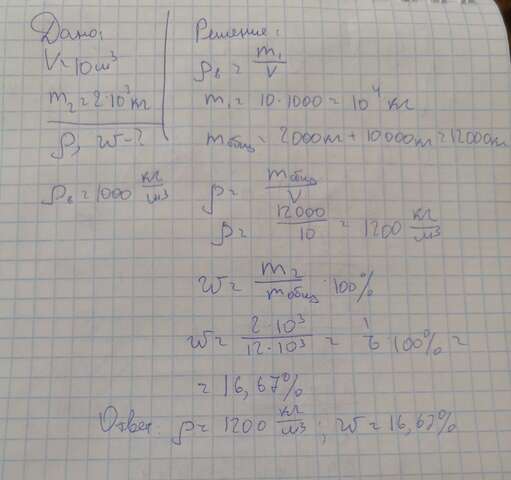 Дано:
V = 10 м³
m₂ = 2·10³ кг
ρ, w - ?
ρв = 1000 кг/м³
Решение:
ρв = m₁/V
m₁ = 10·1000 = 10⁴ кг
mобщ = 2000кг + 10000кг = 12000кг
ρ = mобщ/V
ρ = 12000/10 = 1200 кг/м³
w = m₂/mобщ · 100%
w = 2·10³/12·10³ = 1/6 · 100% =
= 16,67%
Ответ: ρ = 1200 кг/м³; w = 16,67%